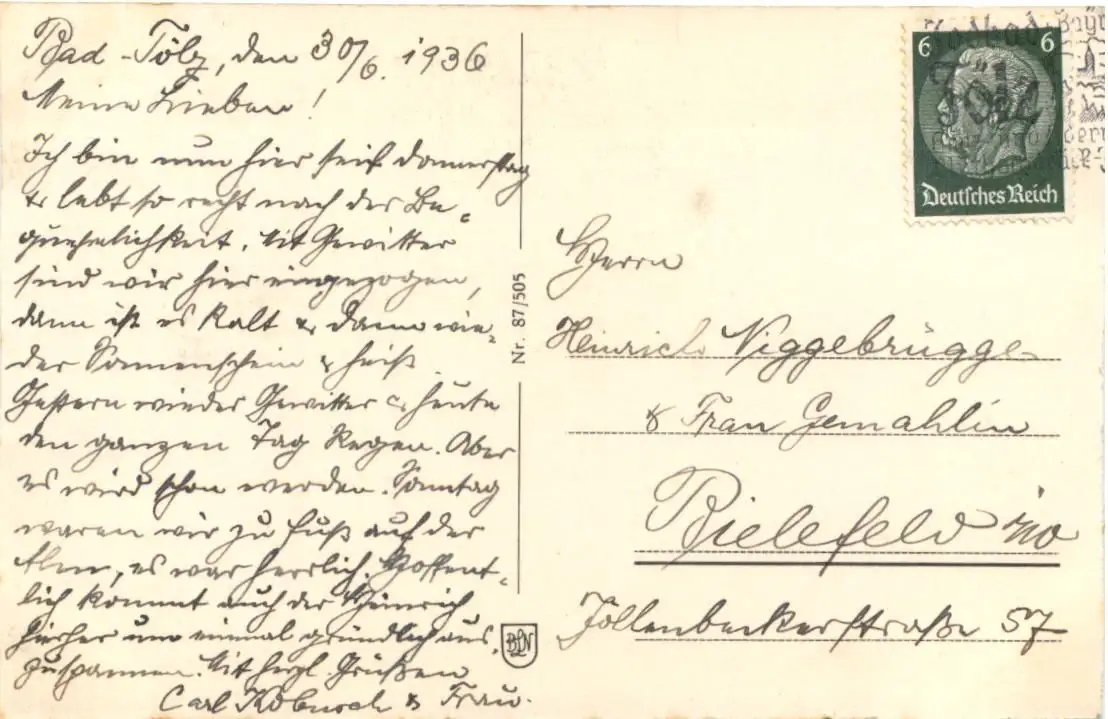 Bad-Tölz, den 30/6. 1936
Meine Lieben!
Ich bin nun hier seit Donnerstag
& lebt so recht nach der Be-
quehmlichkeit. Mit Gewitter
sind wir hier eingezogen,
dann ist es kalt & dann wie-
der Sonnenschein & heiß.
Gestern wieder Gewitter & heute
den ganzen Tag Regen. Aber
es wird schon werden. Sonntag
waren wir zu Fuß auf der
Alm, es war herrlich. Hoffent-
lich kommt auch der Heinrich
hierher um einmal gründlich aus-
zuspannen. Mit herzl. Grüßen
Carl & Frau.
Nr. 87/505
BLN
6 6
Deutsches Reich
Tölz
Herrn
Heinrich Niggebrügge
& Frau Gemahlin
Bielefeld
Jöllenbeckerstraße 57